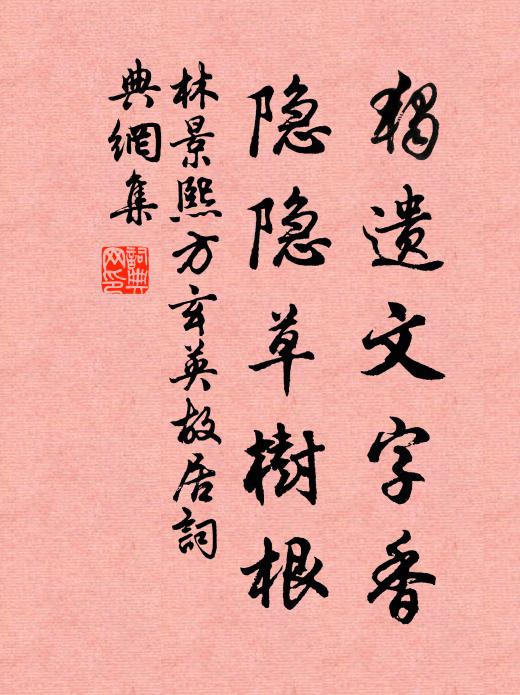 獨遺文字香
隐隐草樹根
林景熙方玄英故居詞
典網集
詞典网印